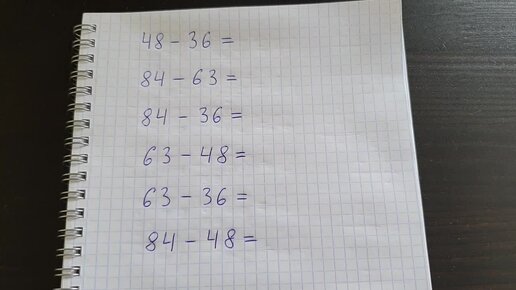 48 - 36 =
84 - 63 =
84 - 36 =
63 - 48 =
63 - 36 =
84 - 48 =